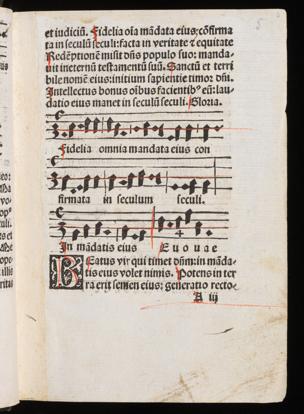 5
et iudiciũ. Fidelia oĩa mãdata eius: cõfirma
ta in seculũ seculi: facta in veritate ⁊ equitate
Redẽptionẽ misit dñs populo suo: manda-
uit ineternũ testamentũ suũ. Sanctũ et terri
bile nomẽ eius: initium sapientie timor dñi.
Intellectus bonus oĩbus facientibꝰ eũ: lau-
datio eius manet in seculũ seculi. Gloria.
Fidelia omnia mandata eius con
firmata in seculum seculi.
In mãdatis eius E u o u a e
BEatus vir qui timet dñm: in mãda-
tis eius volet nimis. Potens in ter
ra erit semen eius: generatio recto-
A iij